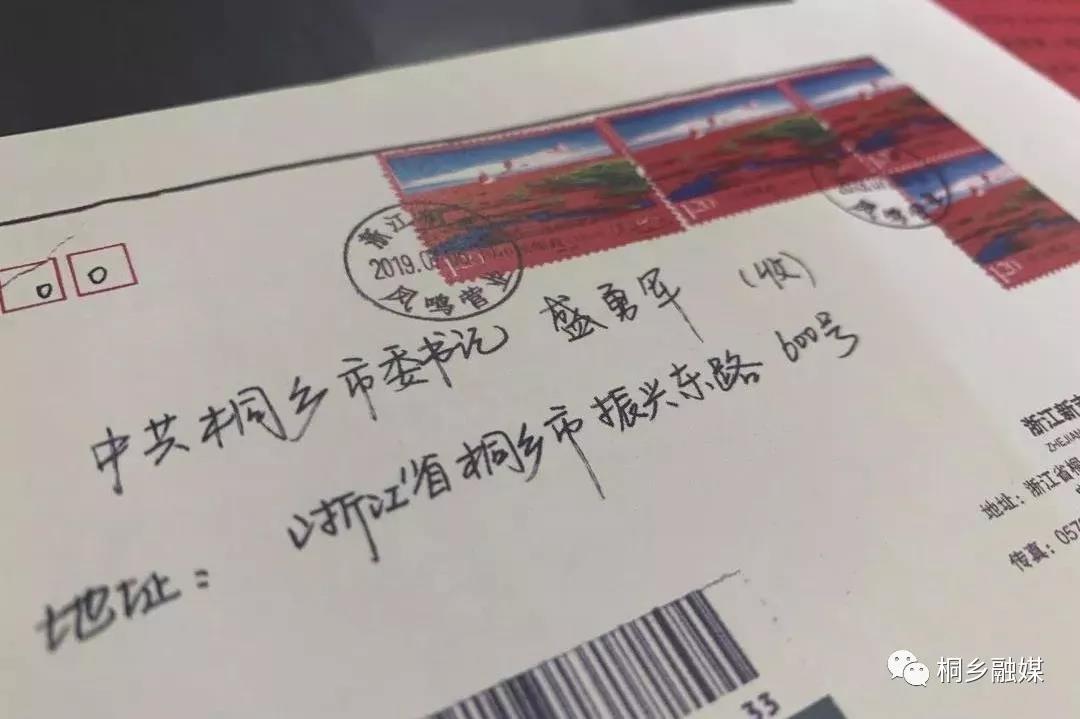 0 0
浙江
2019.0
1.20
1.20
中共桐乡市委书记 盛勇军 (收)
浙江省桐乡市振兴东路600号
地址:
浙江新
ZHEJIAN
地址:浙江省桐
传真:057
33
桐乡融媒